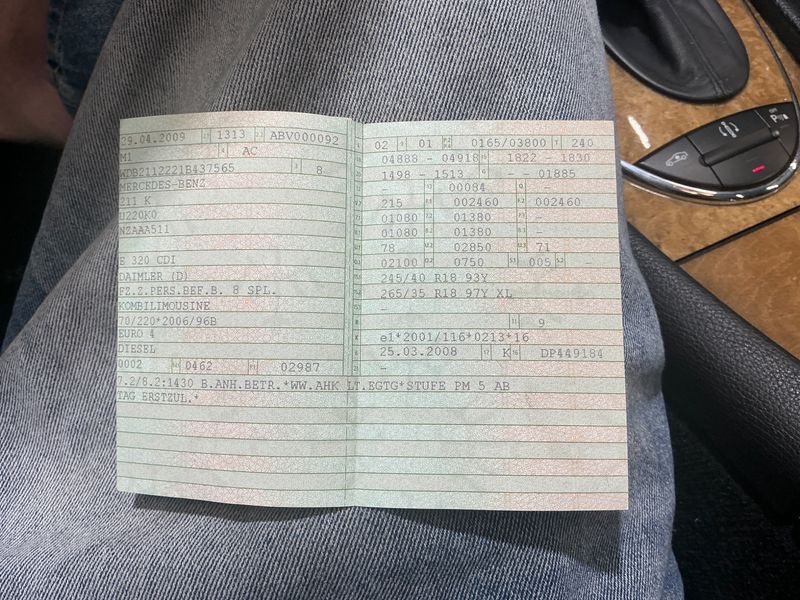 29.04.2009 1313 ABV000092
M1 AC
WDB2112221B437565 8
MERCEDES-BENZ
211 K
U220K0
NZAAA511
E 320 CDI
DAIMLER (D)
FZ.Z.PERS.BEF.B. 8 SPL.
KOMBILIMOUSINE
70/220*2006/96B
EURO 4
DIESEL
0002 0462 02987
02 01 0165/03800 240
04888 - 04918 1822 - 1830
1498 - 1513 - - 01885
- - 00084 -
215 002460 002460
01080 01380 -
01080 01380 -
78 02850 71
02100 0750 005 -
245/40 R18 93Y
265/35 R18 97Y XL
-
- 9
e1*2001/116*0213*16
25.03.2008 K DP449184
-
7.2/8.2:1430 B.ANH.BETR.*WW.AHK LT.EGTG*STUFE PM 5 AB
TAG ERSTZUL.*